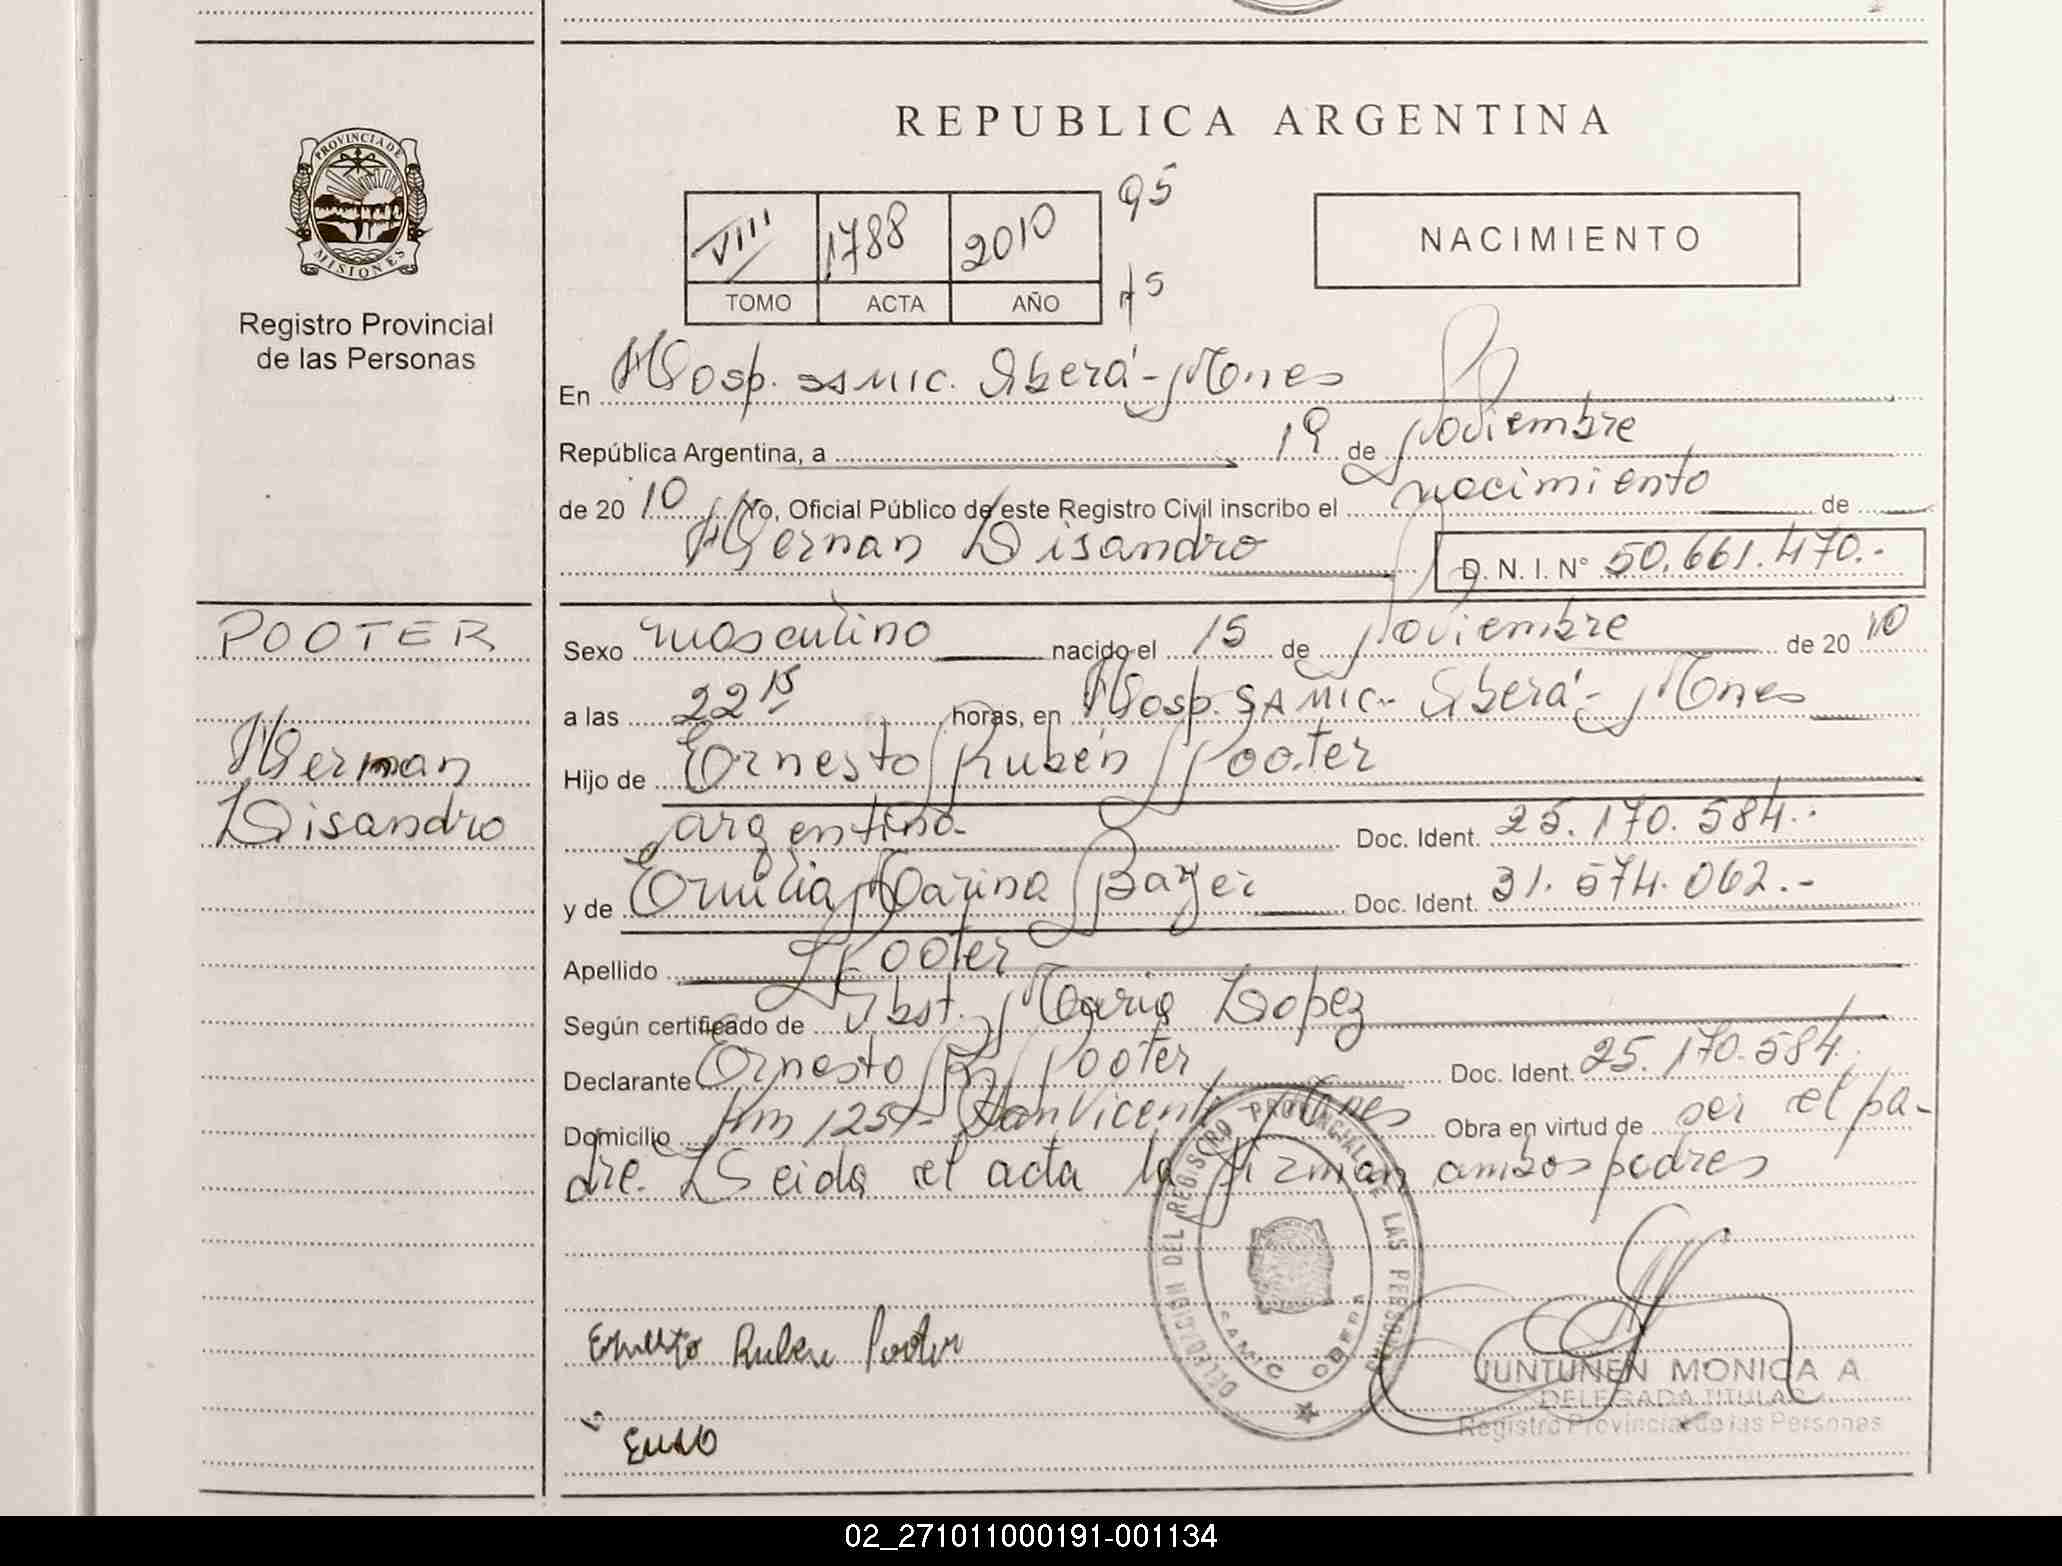 REPUBLICA ARGENTINA
PROVINCIA DE
MISIONES
Registro Provincial
de las Personas
VIII 1788 2010
TOMO ACTA AÑO
95
NACIMIENTO
En Hosp. SAMIC. Oberá - Mnes
República Argentina, a 19 de Noviembre
de 20 10 Yo, Oficial Público de este Registro Civil inscribo el nacimiento de
Hernan Lisandro
D. N. I. Nº 50.661.470.-
POOTER
Hernan
Lisandro
Sexo masculino nacido el 15 de Noviembre de 20 10
a las 22 15 horas, en Hosp. SAMIC - Oberá - Mnes
Hijo de Ernesto Rubén Pooter
argentino Doc. Ident. 25.170.584.-
y de Emilia Marina Bayer Doc. Ident. 31.574.062.-
Apellido Pooter
Según certificado de Obst. Maria Lopez
Declarante Ernesto R. Pooter Doc. Ident. 25.170.584.
Domicilio Km 1257 - San Vicente Mnes Obra en virtud de ser el pa-
dre. Leida el acta la firman ambos padres
DELEGACION DEL REGISTRO PROVINCIAL DE LAS PERSONAS
SAMIC OBERA
Ernesto Ruben Pooter
JUNTUNEN MONICA A.
DELEGADA TITULAR
Registro Provincial de las Personas
02_271011000191-001134